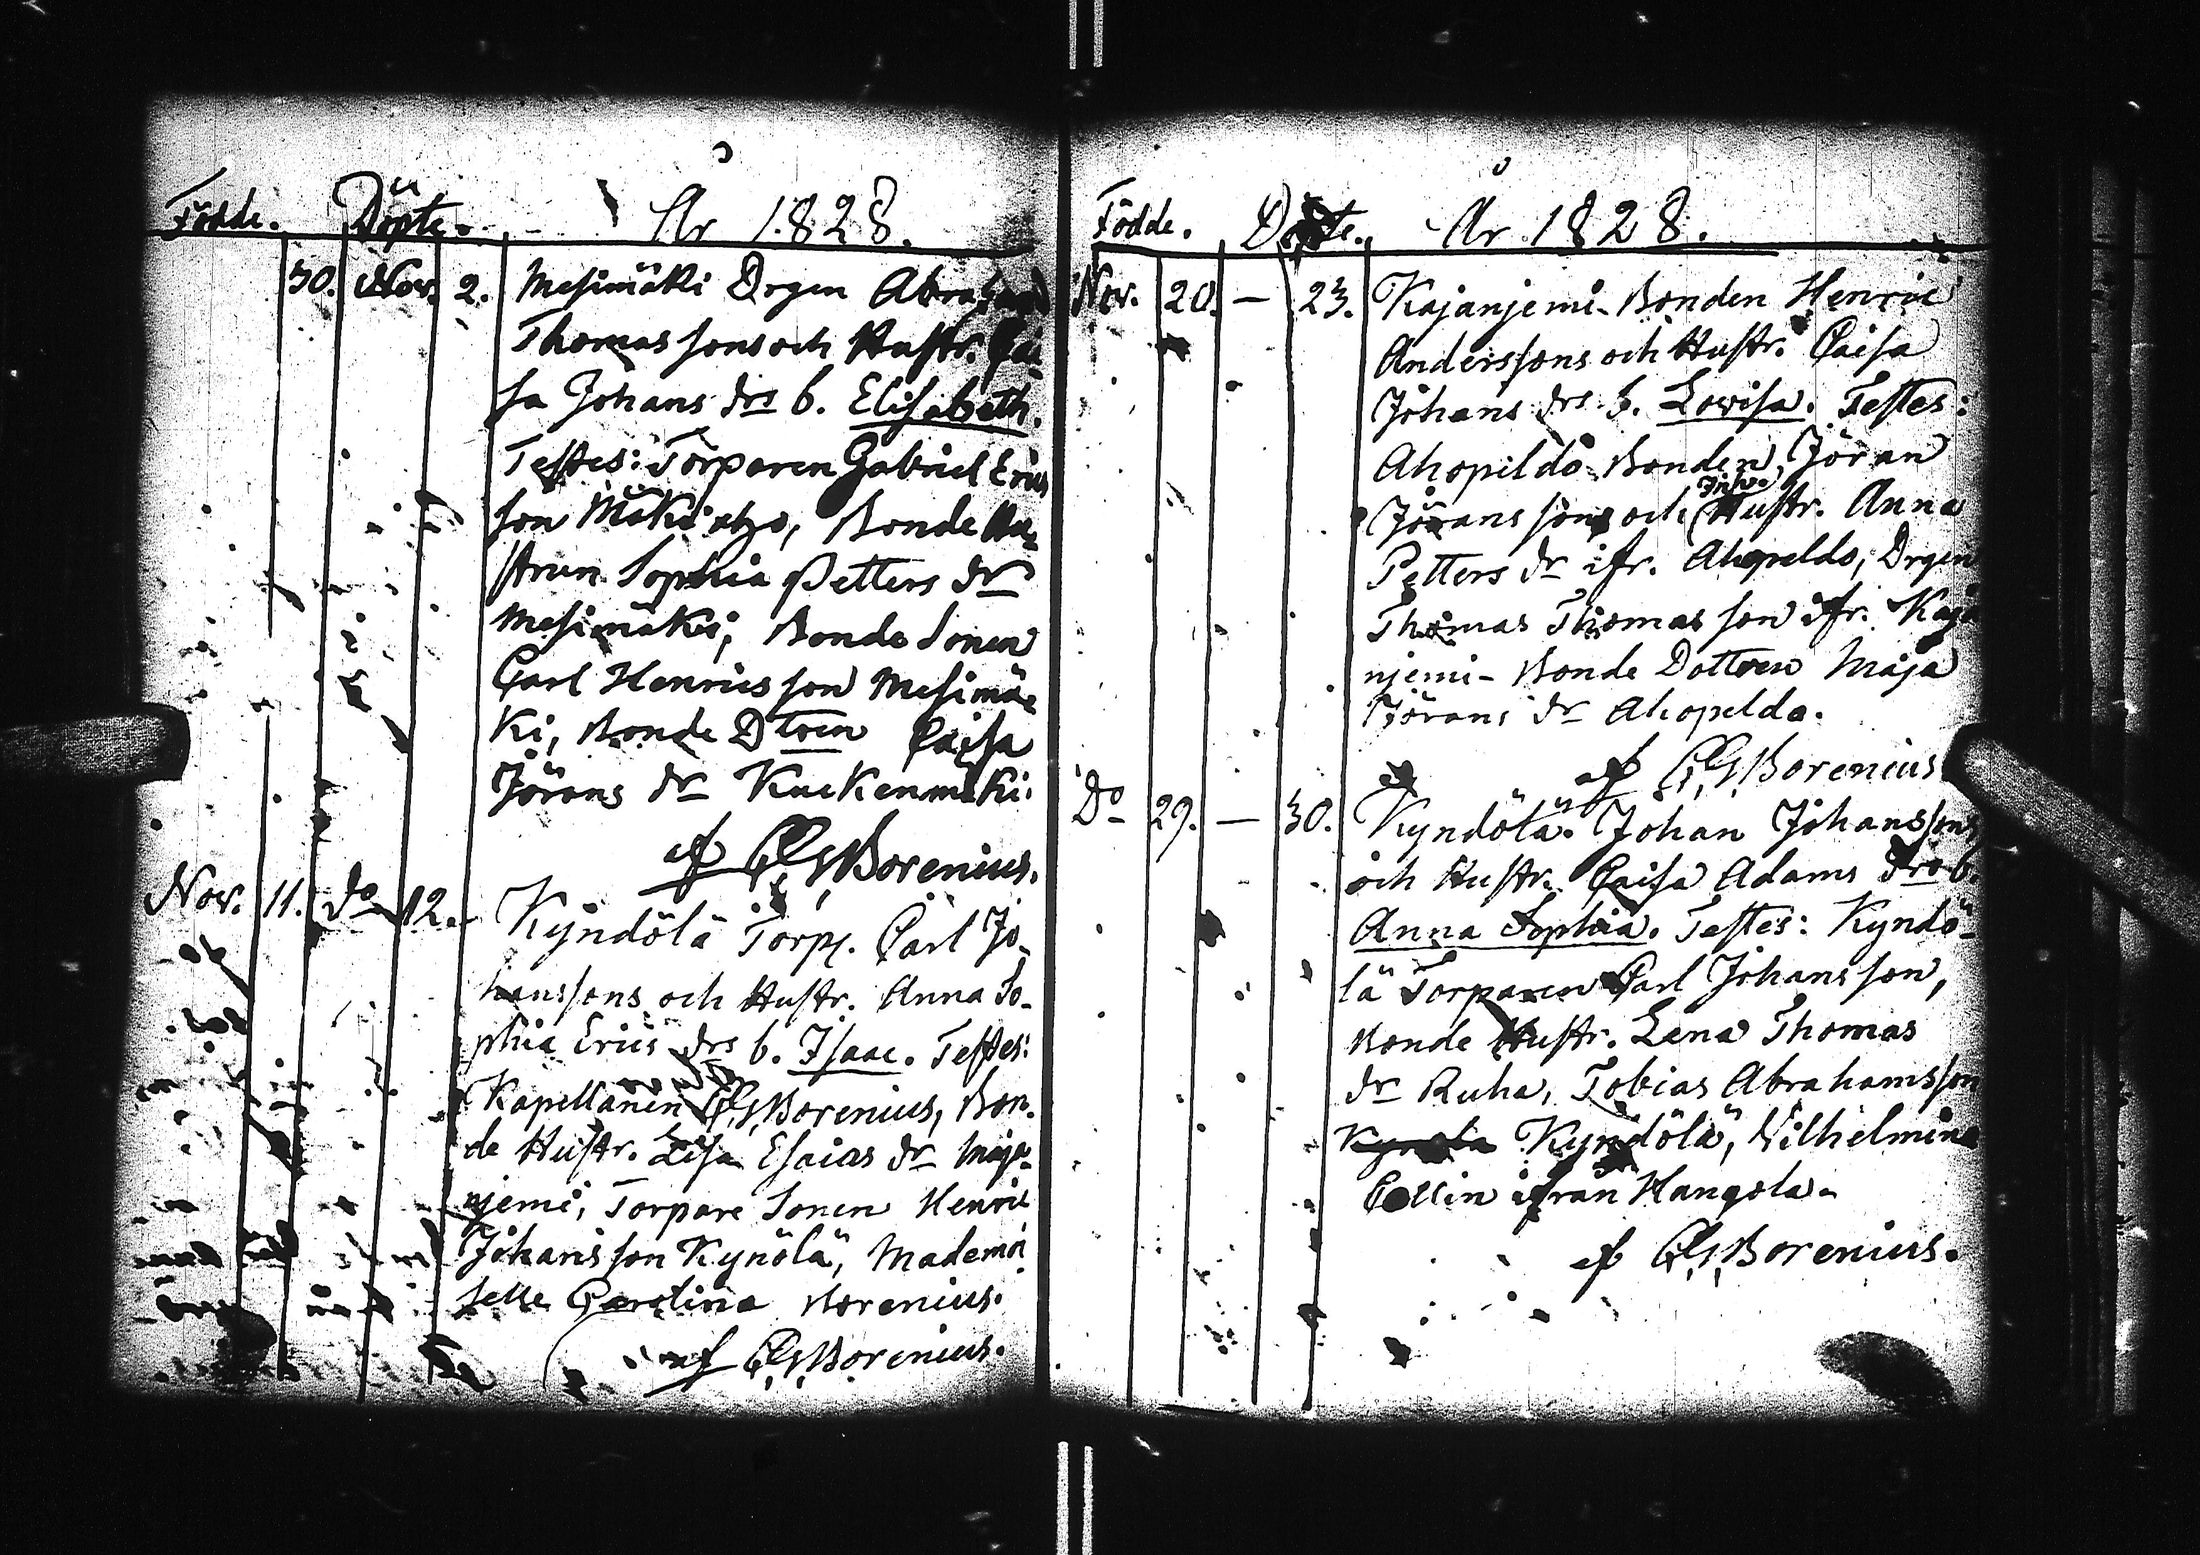 Födde. Döpte. År 1828.
30. Nov. 2. Mesimäki Drgen Abrahams
Thomassons och Hustr. Cai-
sa Johans drs b. Elisabeth.
Testes: Torparen Gabriel Erics
son Mäki, Bonde Hu-
strun Sophia Petters dr
Mesimäki, Bonde Sonen
Carl Henricsson Mesimä-
ki, Bonde Dtren Caisa
Jörans dr Kuckenmäki.
af CGBorenius.
Nov. 11. do 12. Kyndölä Torp. Carl Jo-
hanssons och Hustr. Anna So-
phia Erics drs b. Isaac. Testes:
Kapellanen CGBorenius, Bon-
de Hustr. Lisa Esaias dr Maja-
njemi, Torpare Sonen Henric
Johansson Kynölä, Mademoi
selle Carolina Borenius.
af CGBorenius.
Födde. Döpte. År 1828.
Nov. 20. — 23. Kajanjemi Bonden Henric
Anderssons och Hustr. Caisa
Johans drs b. Lovisa. Testes:
Ahopildo Bonden Jöran
Jöranssons och Inh. Hustr. Anna
Petters dr ifr. Ahopeldo, Drgen
Thomas Thomasson ifr. Kaja
njemi Bonde Dottren Maja
Jörans dr Ahopelda.
af CGBorenius
Do 29. — 30. Kyndölä. Johan Johanssons
och Hustr. Caisa Adams drs b.
Anna Sophia. Testes: Kyndö-
lä Torparen Carl Johansson,
Bonde Hustr. Lena Thomas
dr Ruha, Tobias Abrahamsson
Kyndölä, Vilhelmina
Collin ifrån Kangola.
af CGBorenius.